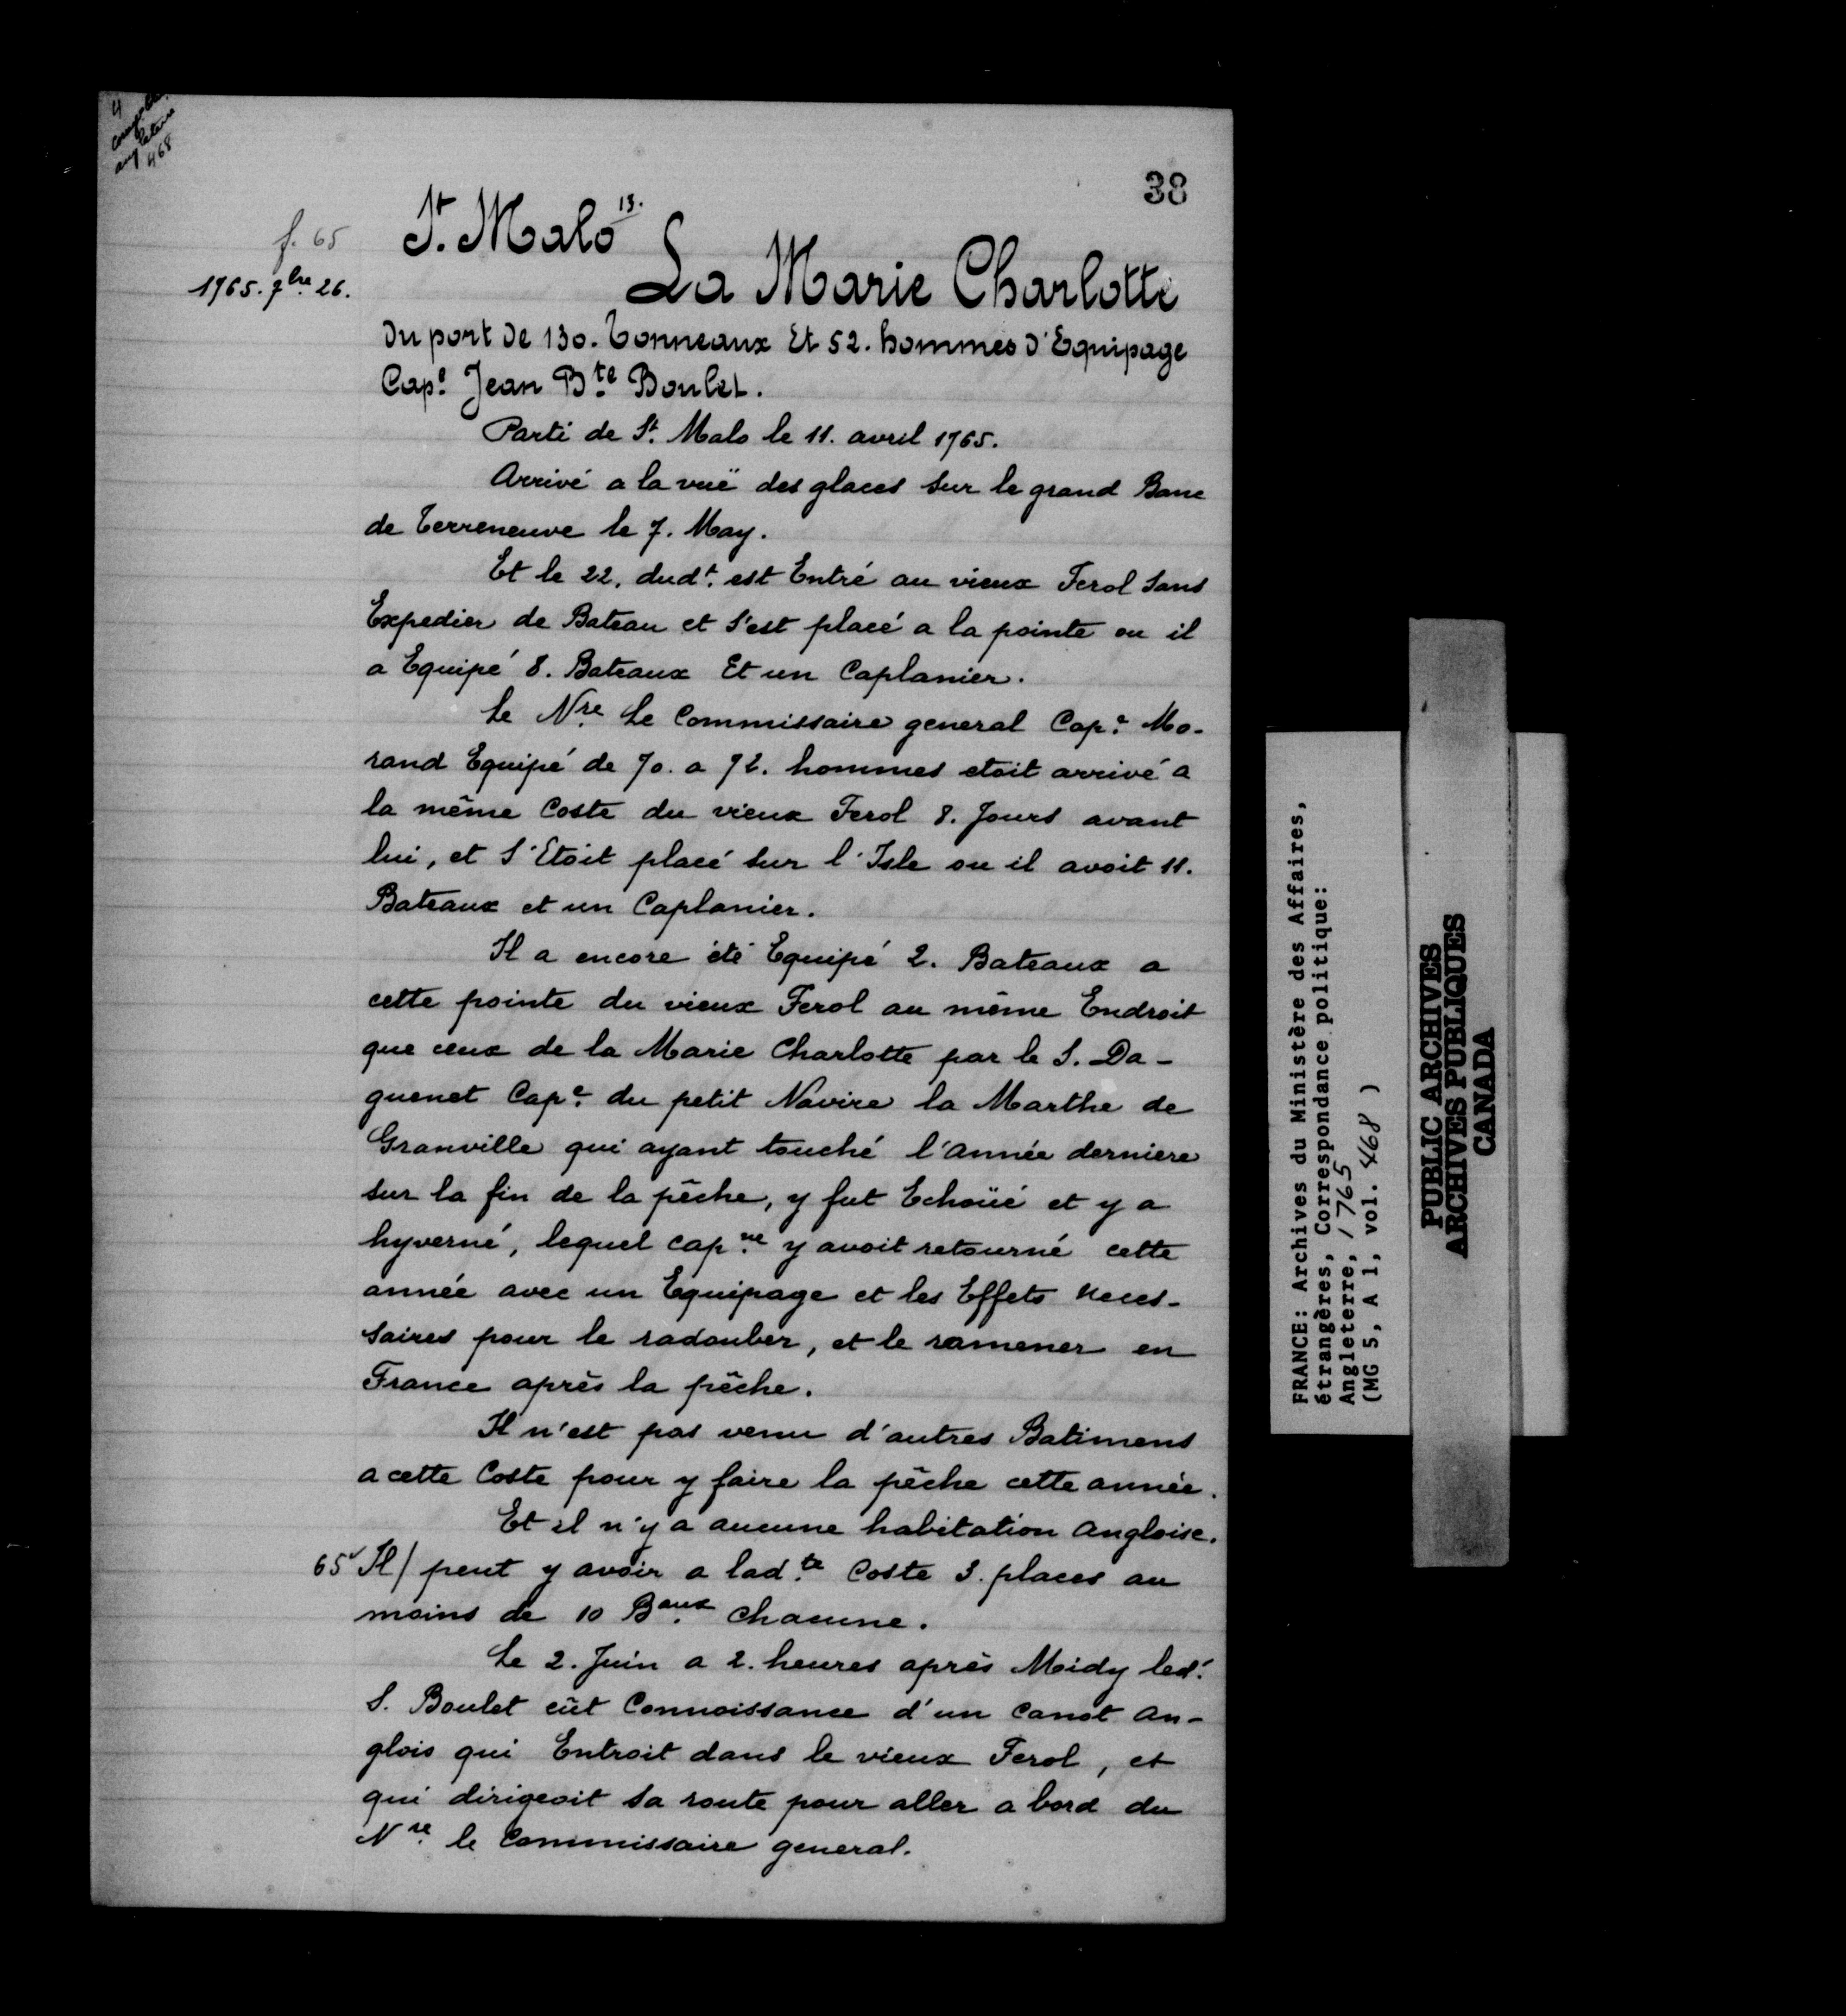 4
angleterre
468
38
f. 65
1765. 7bre 26.
St. Malo 13.
La Marie Charlotte
Du port de 130. Tonneaux Et 52. hommes d'Equipage
Cape. Jean Bte. Boulet.
Parti de St. Malo le 11. avril 1765.
Arrivé a la vuë des glaces sur le grand Banc
de Terreneuve le 7. May.
Et le 22. dudt. est Entré au vieux Ferol sans
Expedier de Bateau et s'est placé a la pointe ou il
a Equipé 8. Bateaux Et un Caplanier.
Le Nre. Le Commissaire general Cape. Mo-
rand Equipé de 70. a 72. hommes etoit arrivé a
la même Coste du vieux Ferol 8. Jours avant
lui, et s'Etoit placé sur l'Isle ou il avoit 11.
Bateaux et un Caplanier.
Il a encore été Equipé 2. Bateaux a
cette pointe du vieux Ferol au même Endroit
que ceux de la Marie Charlotte par le S. Da-
guenet Cape. du petit Navire la Marthe de
Granville qui ayant touché l'année derniere
sur la fin de la pêche, y fut Echoüé et y a
hyverné, lequel capne. y avoit retourné cette
année avec un Equipage et les Effets neces-
saires pour le radouber, et le ramener en
France après la pêche.
Il n'est pas venu d'autres Batimens
a cette Coste pour y faire la pêche cette année.
Et il n'y a aucune habitation angloise.
65v Il/ peut y avoir a ladte. Coste 3. places au
moins de 10 Baux. chacune.
Le 2. Juin a 2. heures après Midy led.
S. Boulet eût Connoissance d'un canot an-
glois qui Entroit dans le vieux Ferol, et
qui dirigeoit sa route pour aller a bord du
Nre. le Commissaire general.
FRANCE: Archives du Ministère des Affaires,
étrangères, Correspondance politique:
Angleterre, 1765
(MG 5, A 1, vol. 468 )
PUBLIC ARCHIVES
ARCHIVES PUBLIQUES
CANADA